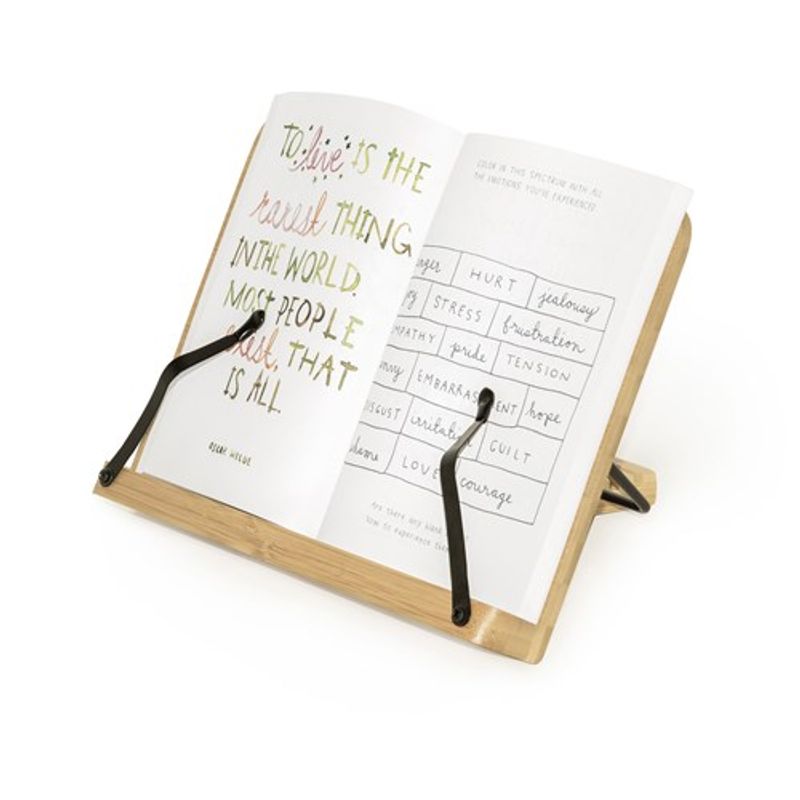 TO "live" IS THE
rarest THING
IN THE WORLD.
MOST PEOPLE
exist, THAT
IS ALL.
OSCAR WILDE
COLOR IN THIS SPECTRUM WITH ALL
THE EMOTIONS YOU'VE EXPERIENCED
HURT jealousy
STRESS frustration
pride TENSION
hope
GUILT
LOVE courage
Are there any blank
how to experience